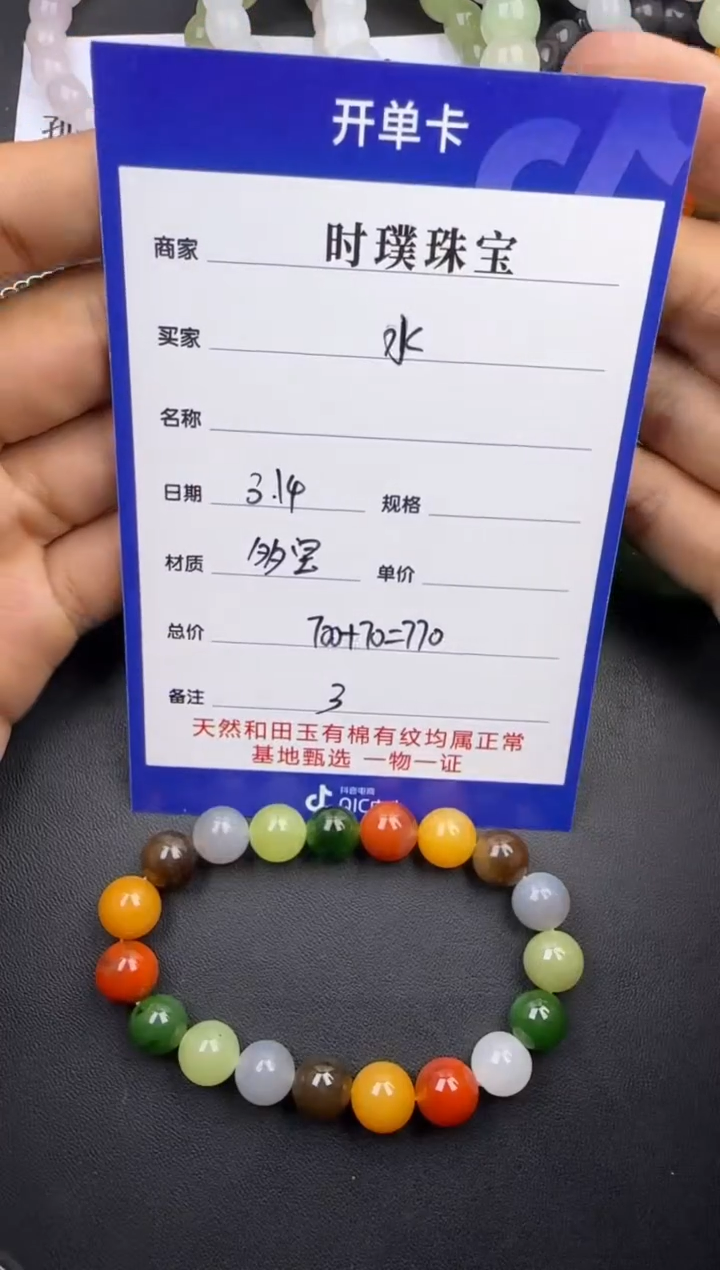 开单卡
商家 时璞珠宝
买家 水
名称
日期 3.14 规格
材质 多宝
单价
总价 700+70=770
备注 3
天然和田玉有棉有纹均属正常
基地甄选 一物一证
抖音电商
QIC